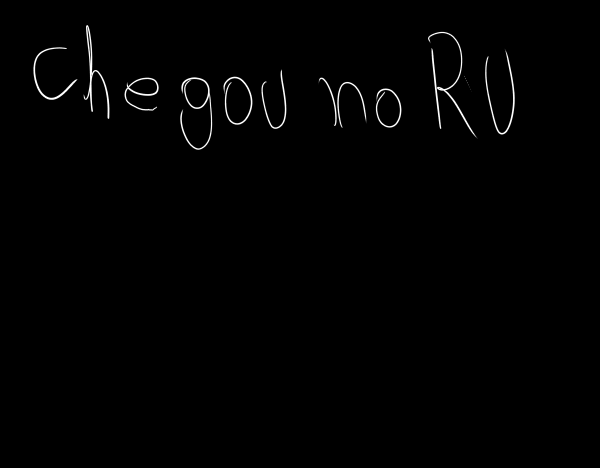 Chegou no RU